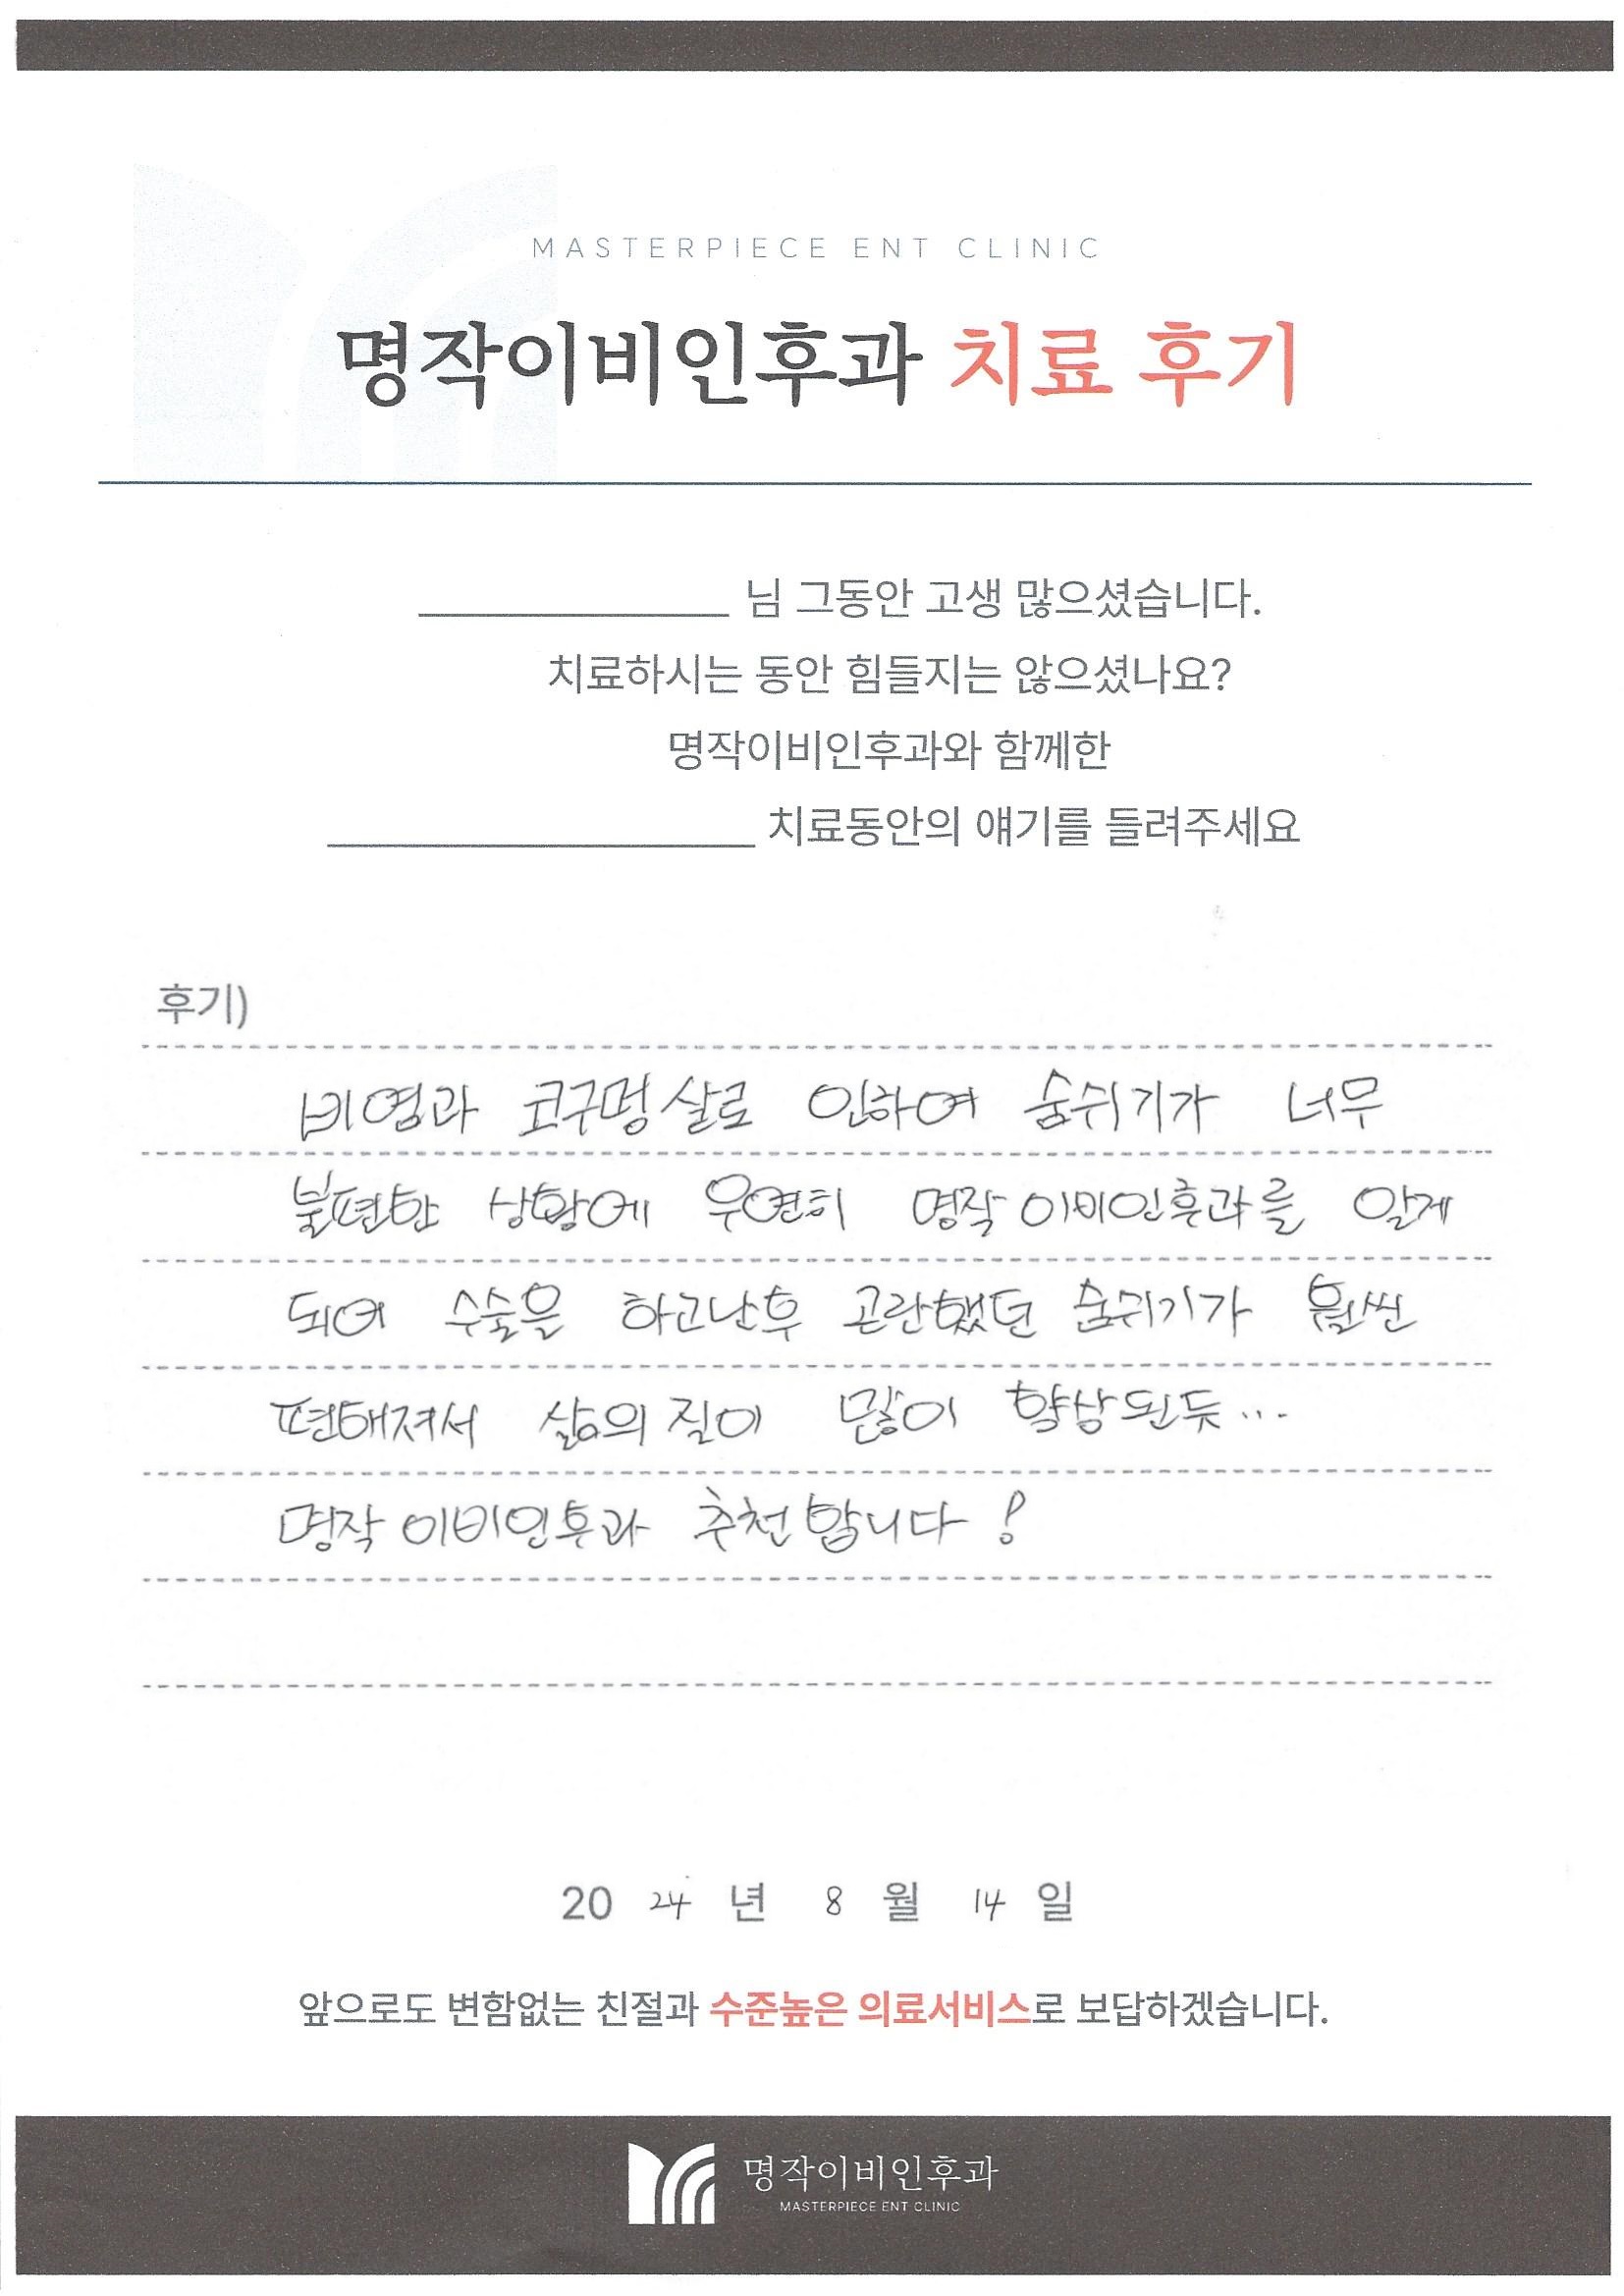 MASTERPIECE ENT CLINIC
명작이비인후과 치료 후기
님 그동안 고생 많으셨습니다.
치료하시는 동안 힘들지는 않으셨나요?
명작이비인후과와 함께한
치료동안의 얘기를 들려주세요
후기)
비염과 코구멍살로 인하여 숨쉬기가 너무
불편한 상황에 우연히 명작이비인후과를 알게
되어 수술을 하고난후 곤란했던 숨쉬기가 훨씬
편해져서 삶의질이 많이 향상된듯...
명작이비인후과 추천합니다!
20 24 년 8 월 14 일
앞으로도 변함없는 친절과 수준높은 의료서비스로 보답하겠습니다.
명작이비인후과
MASTERPIECE ENT CLINIC